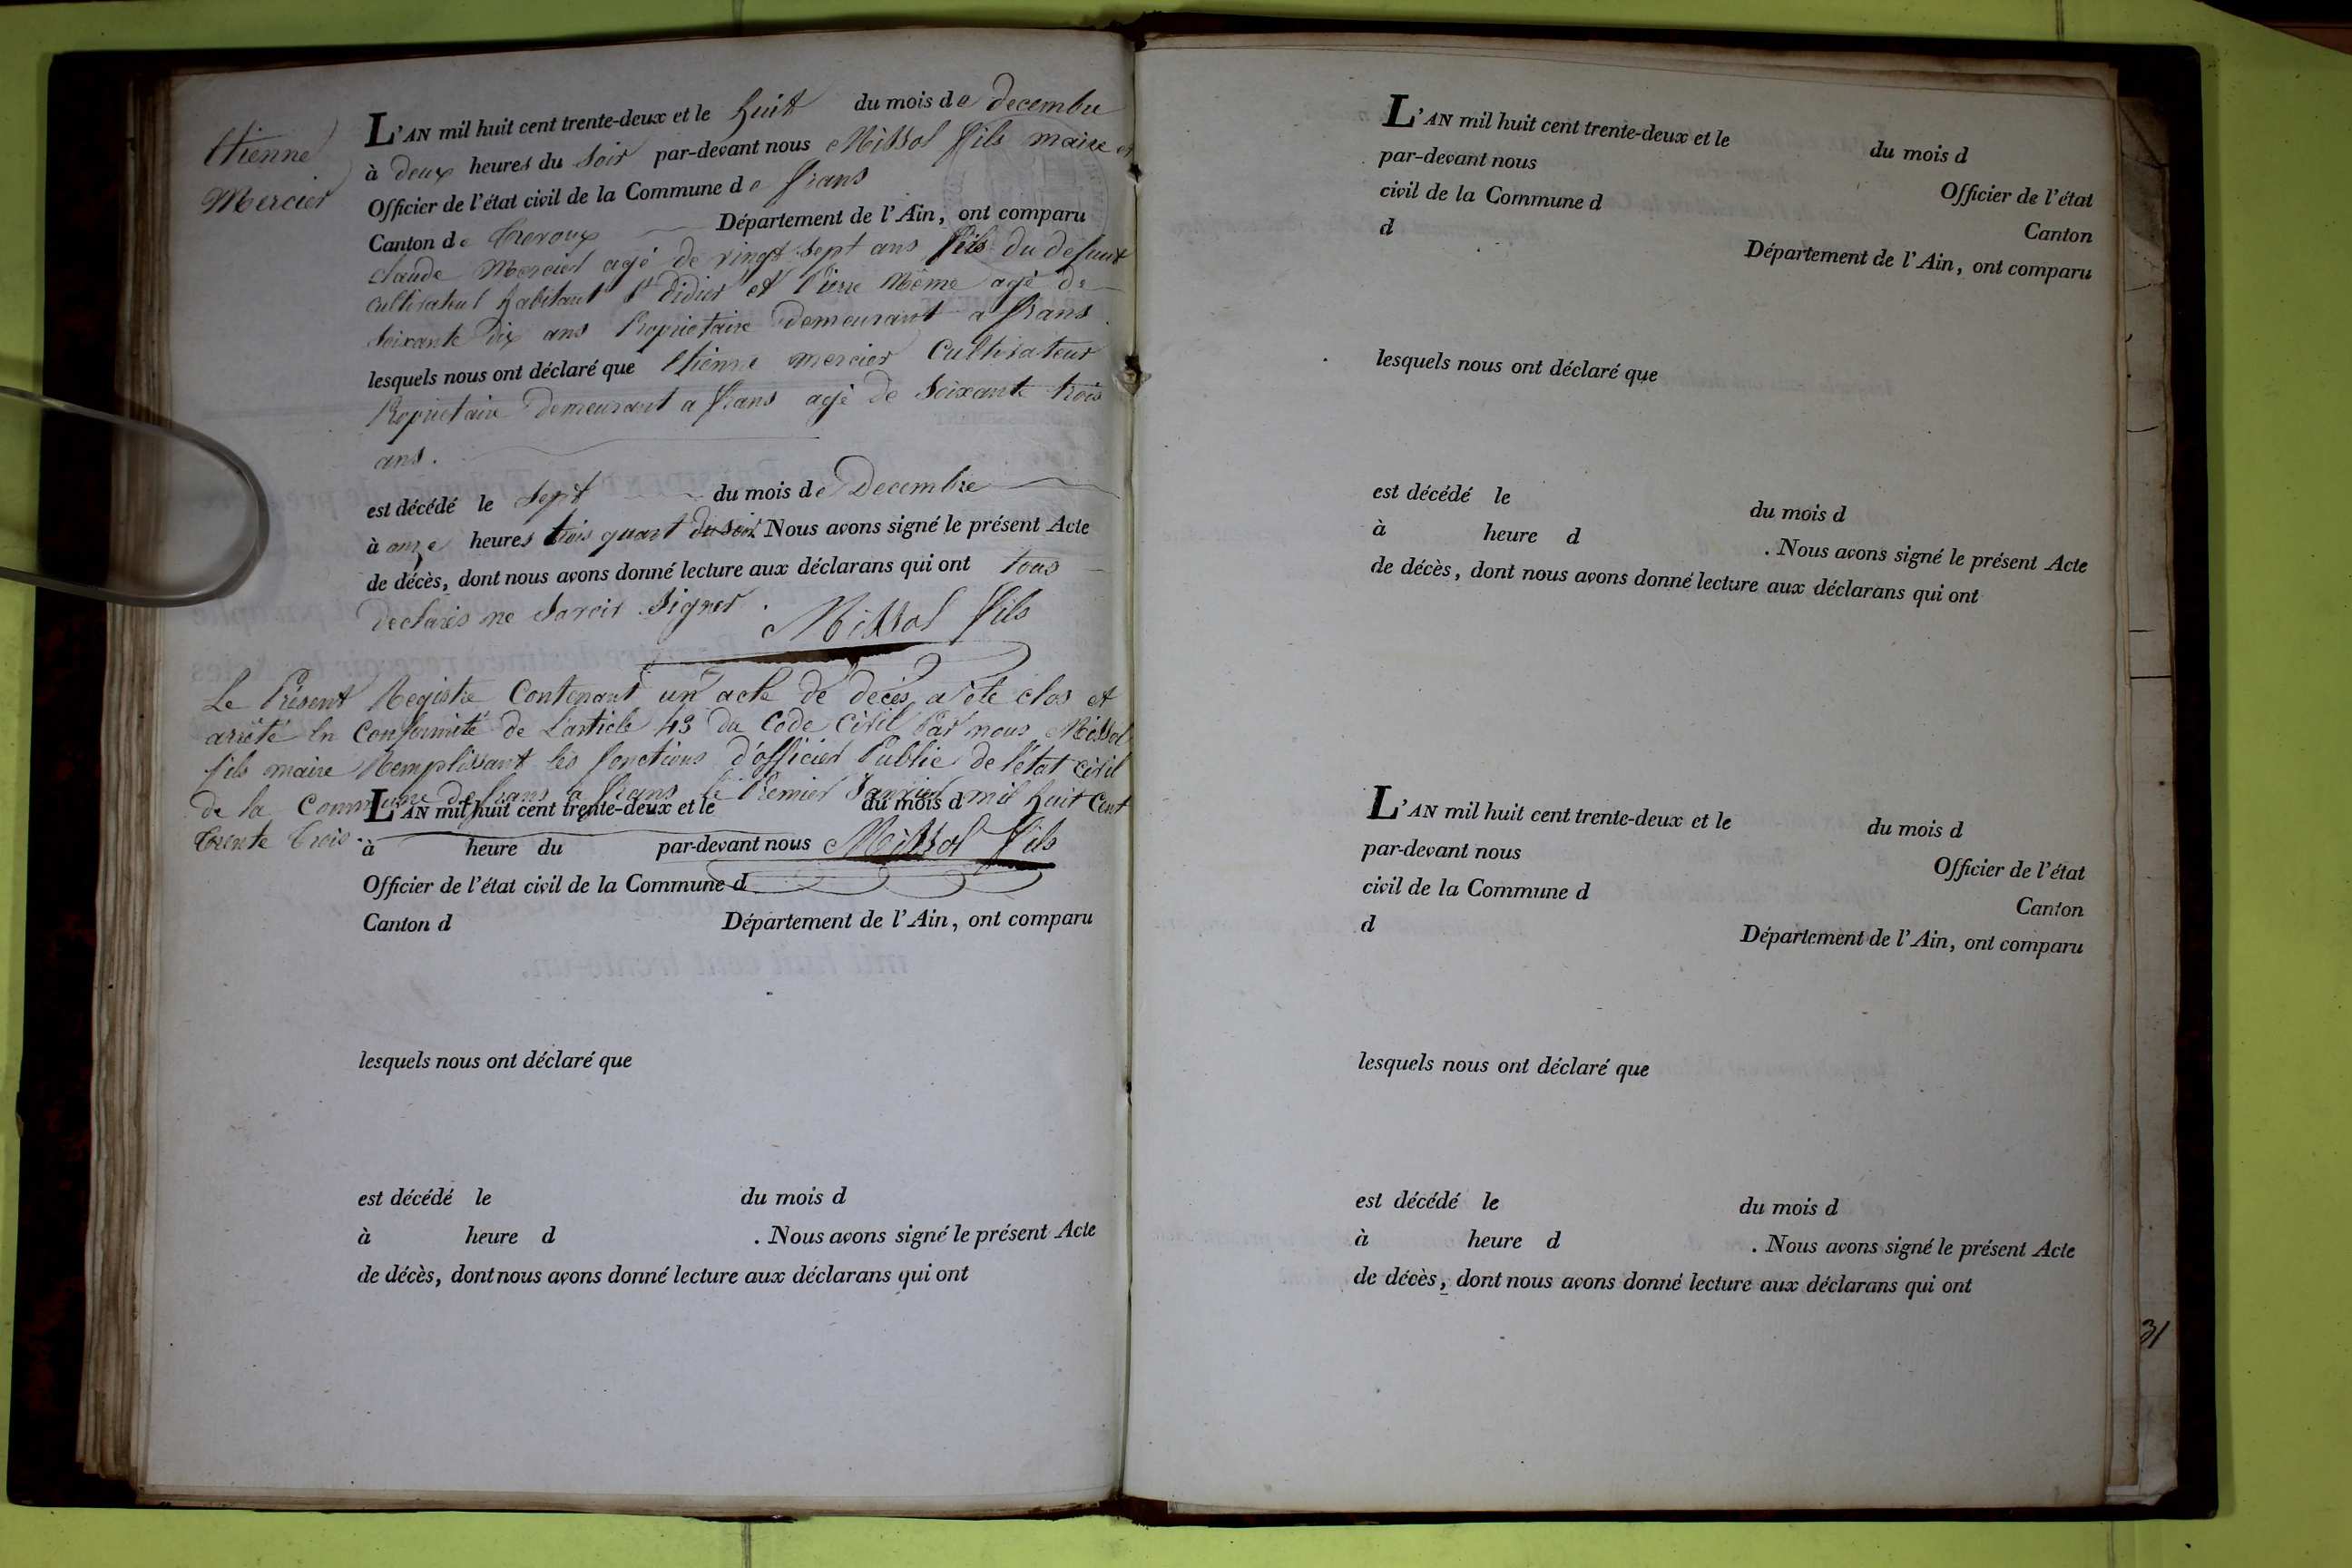 Etienne
Mercier
L'AN mil huit cent trente-deux et le huit du mois de decembre
à deux heures du soir par-devant nous Missol fils maire et
Officier de l'état civil de la Commune de frans
Canton de Trevoux Département de l'Ain, ont comparu
claude Mercier agé de vingt sept ans fils du defunt
cultivateur habitant St didier et Pierre Même agé de
soixante dix ans Proprietaire demeurant a frans
lesquels nous ont déclaré que Etienne mercier Cultivateur
Proprietaire demeurant a frans agé de soixante trois
ans.
est décédé le sept du mois de Decembre
à onze heures trois quart du soir. Nous avons signé le présent Acte
de décès, dont nous avons donné lecture aux déclarans qui ont tous
declarés ne savoir signer. Missol fils
Le Présent Registre Contenant un acte de decès a été clos et
arrêté En Conformité de L'article 43 du Code Civil Par nous Missol
fils maire Remplissant les fonctions d'officier Public de l'état civil
de la Commune de frans a frans le Premier Janvier mil huit Cent
trente trois.
Missol fils
L'AN mil huit cent trente-deux et le du mois d
à heure du par-devant nous
Officier de l'état civil de la Commune d
Canton d Département de l'Ain, ont comparu
lesquels nous ont déclaré que
est décédé le du mois d
à heure d . Nous avons signé le présent Acte
de décès, dont nous avons donné lecture aux déclarans qui ont
L'AN mil huit cent trente-deux et le du mois d
par-devant nous Officier de l'état
civil de la Commune d Canton
d Département de l'Ain, ont comparu
lesquels nous ont déclaré que
est décédé le du mois d
à heure d . Nous avons signé le présent Acte
de décès, dont nous avons donné lecture aux déclarans qui ont
L'AN mil huit cent trente-deux et le du mois d
par-devant nous Officier de l'état
civil de la Commune d Canton
d Département de l'Ain, ont comparu
lesquels nous ont déclaré que
est décédé le du mois d
à heure d . Nous avons signé le présent Acte
de décès, dont nous avons donné lecture aux déclarans qui ont
31